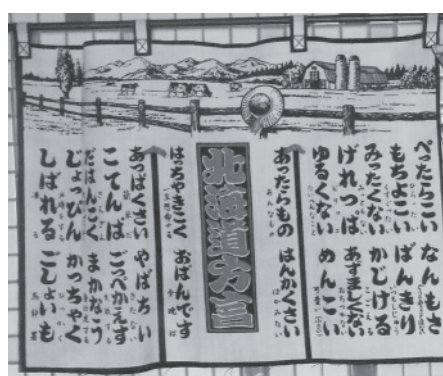 ぺったらこい
なんもさ
もちよこい
ばんきり
みったくない
かじける
げれっぱ
あずましくない
ゆるくない
めんこい
あったらもの
あんなもの
はんかくさい
ばかみたい
北海道方言
はちゃきこく
おばんです
今晩は
あっぱくさい
やばちい
きたない
こてんぱ
ごっぺかえす
だはんこく
まかなう
じょっぴん
かっちゃく
しばれる
凍る
ごしょいも
馬鈴薯